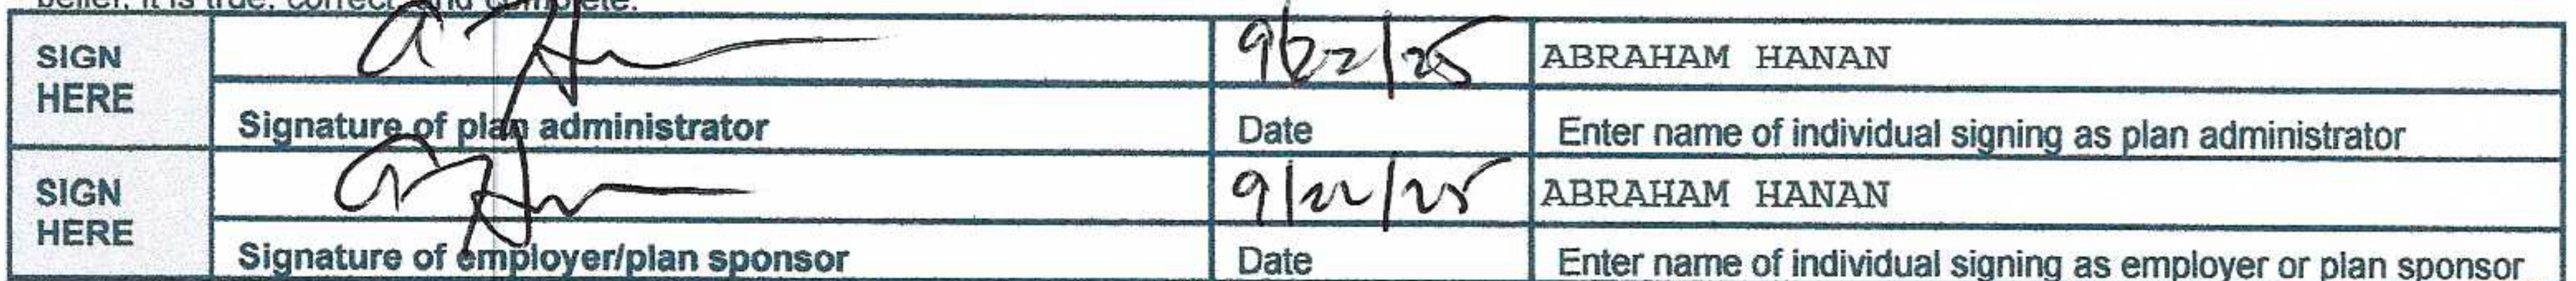 belief, it is true, correct, and complete.
SIGN HERE
9/22/25
ABRAHAM HANAN
Signature of plan administrator
Date
Enter name of individual signing as plan administrator
SIGN HERE
9/22/25
ABRAHAM HANAN
Signature of employer/plan sponsor
Date
Enter name of individual signing as employer or plan sponsor